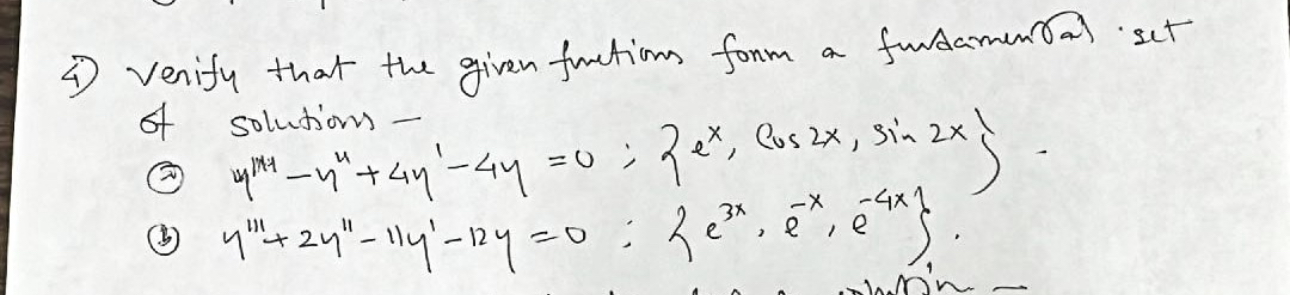 4) Verify that the given functions form a fundamental set
of solutions –
ⓐ y''' - y'' + 4y' - 4y = 0 ; {e^x, Cos 2x, Sin 2x}.
ⓑ y''' + 2y'' - 11y' - 12y = 0 ; {e^{3x}, e^{-x}, e^{-4x}}.